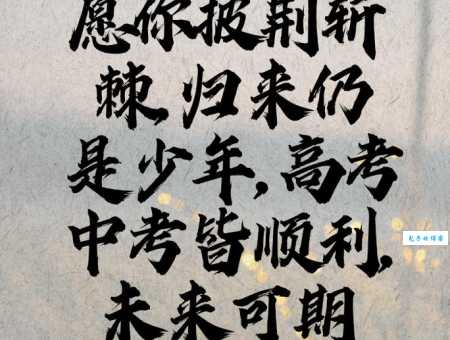 愿你披荆斩
棘，归来仍
是少年，高考
中考皆顺利，
未来可期